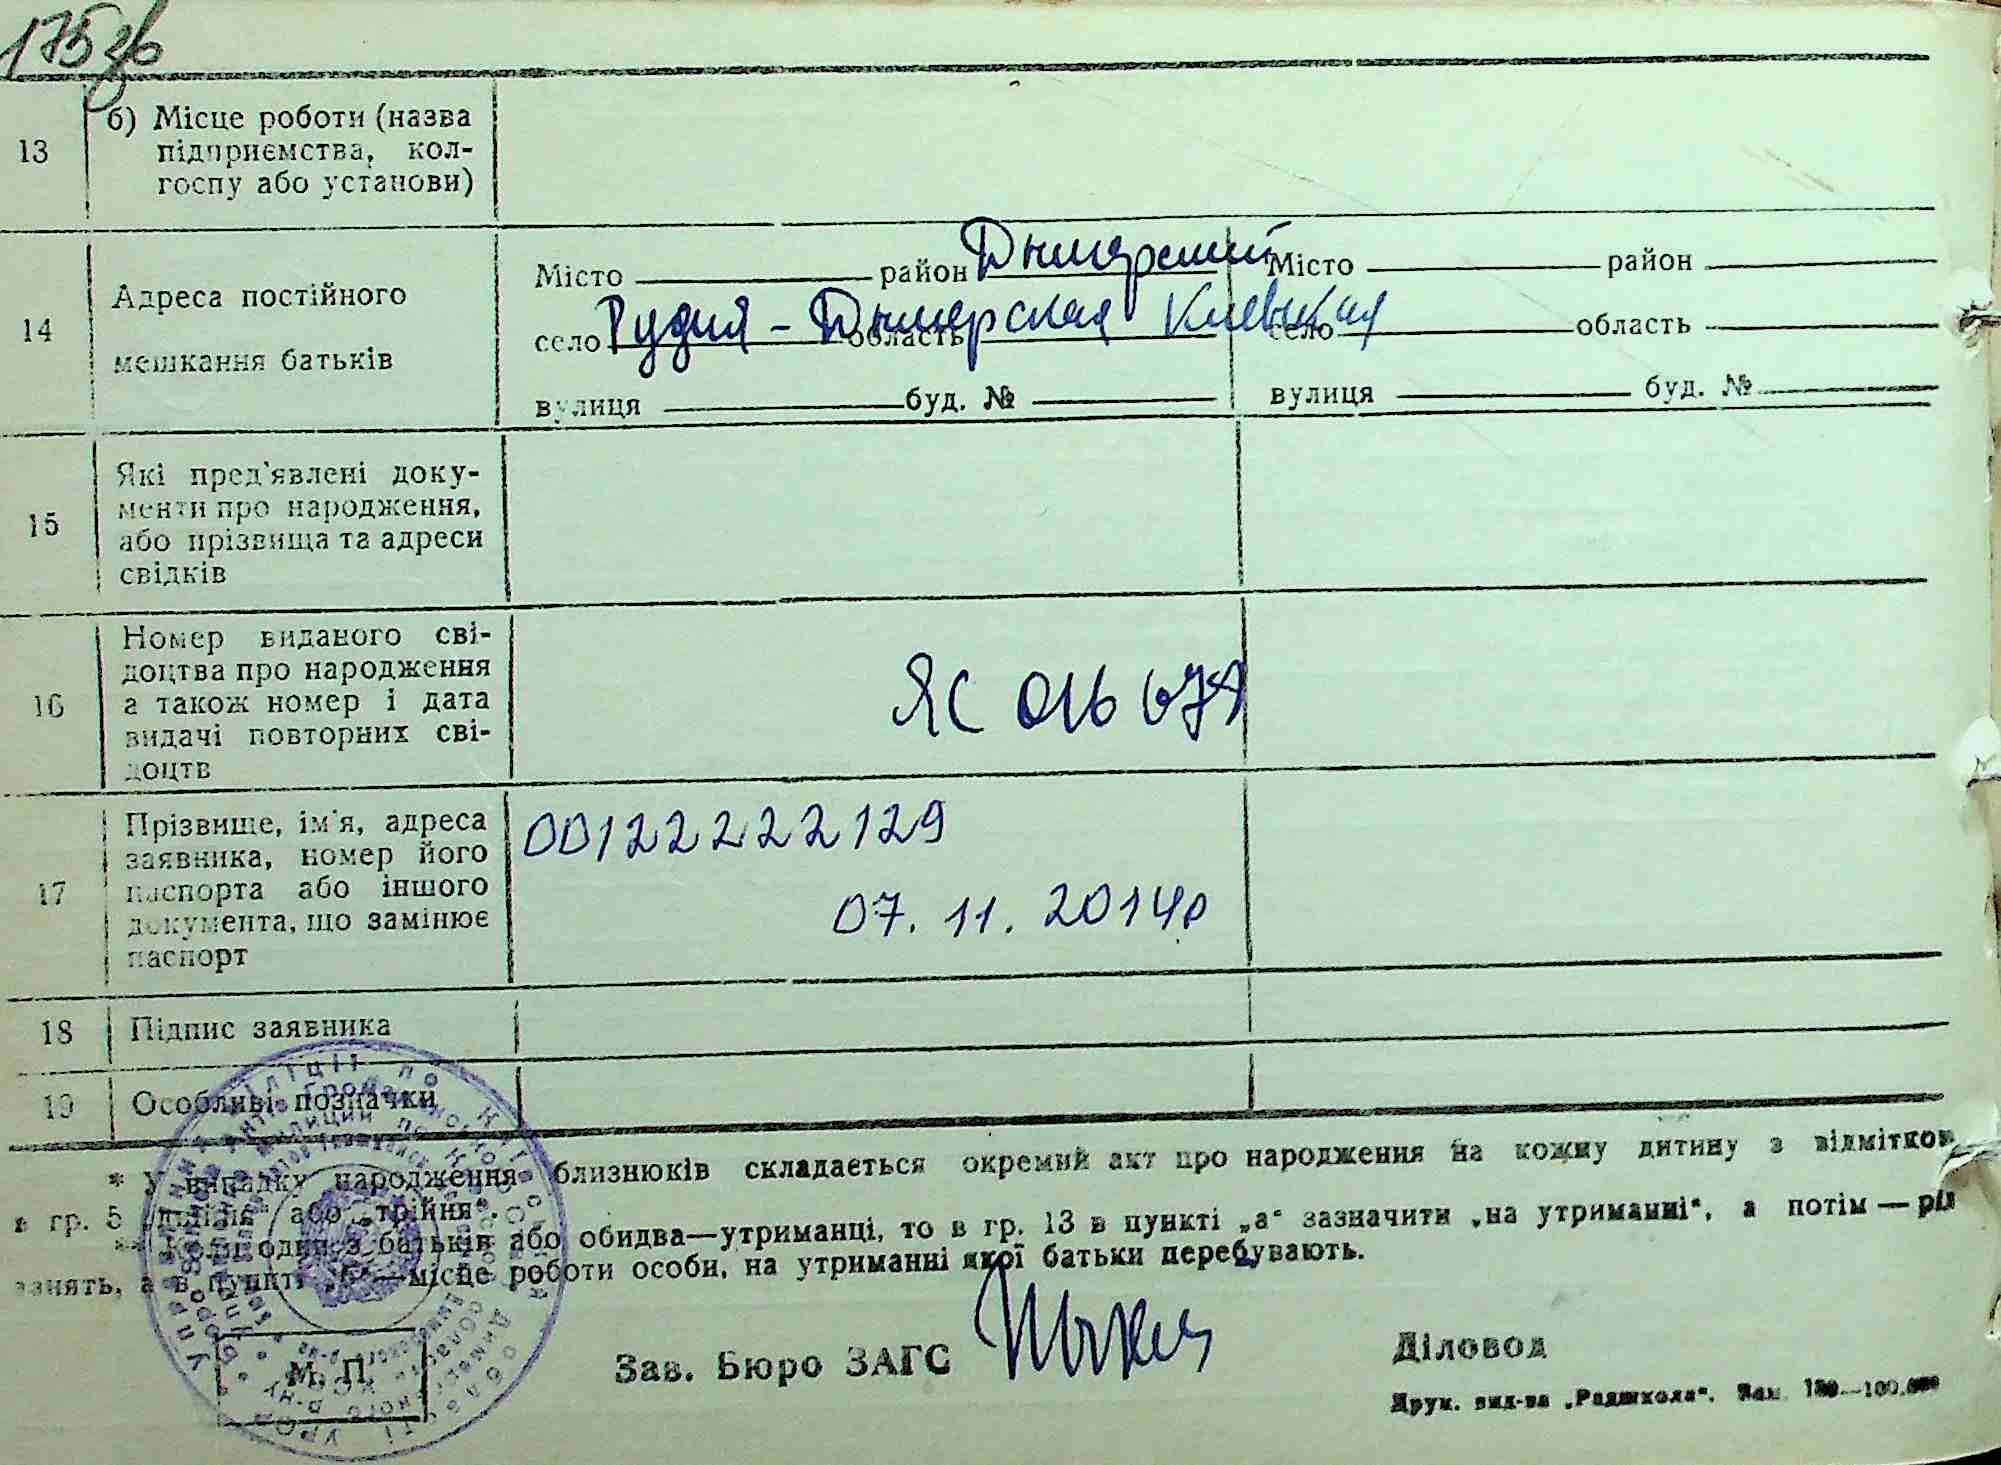 175зв
13
б) Місце роботи (назва
підприємства, кол-
госпу або установи)
14
Адреса постійного
мешкання батьків
Місто район Дымерский
село Рудня - Дымерская область Киевская
вулиця буд. №
Місто район
село область
вулиця буд. №
15
Які пред'явлені доку-
менти про народження,
або прізвища та адреси
свідків
16
Номер виданого сві-
доцтва про народження
а також номер і дата
видачі повторних сві-
доцтв
ЯС 016 679
17
Прізвище, ім'я, адреса
заявника, номер його
паспорта або іншого
документа, що замінює
паспорт
00122222129
07. 11. 2014р
18
Підпис заявника
19
Особливі позначки
* У випадку народження близнюків складається окремий акт про народження на кожну дитину з відміткою
в гр. 5 „двійня" або „трійня".
** Коли один з батьків або обидва—утриманці, то в гр. 13 в пункті „а" зазначити „на утриманні", а потім — рід
занять, а в пункті „б"—місце роботи особи, на утриманні якої батьки перебувають.
М. П.
Зав. Бюро ЗАГС
Діловод
Друк. вид-ва „Радшкола". Зам.